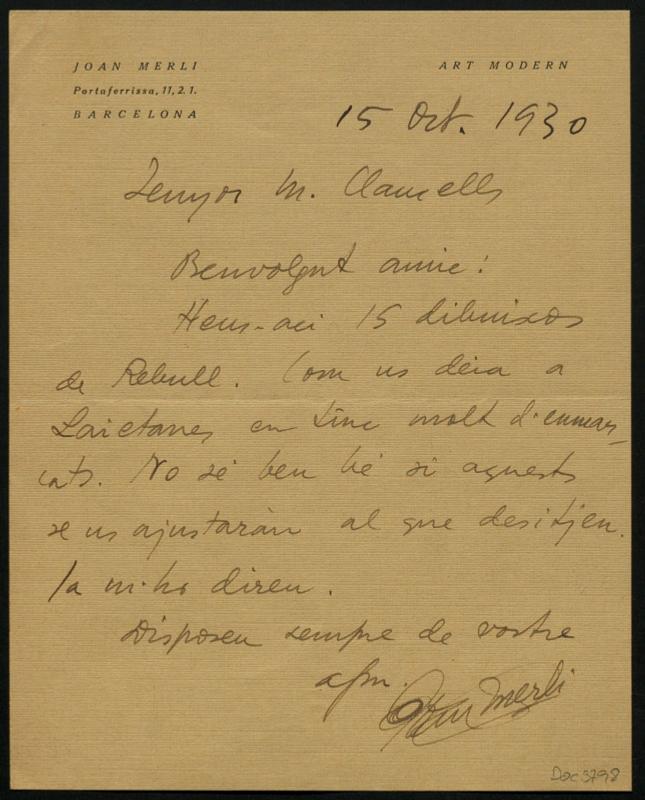 JOAN MERLI
Portaferrissa, 11, 2. 1.
BARCELONA
ART MODERN
15 Oct. 1930
Senyor M. Clausells
Benvolgut amic:
Heus-aci 15 dibuixos
de Rebull. Com us deia a
Laietanes en tinc molt d'enmar-
cats. No sé ben bé si aquests
se us ajustaràn al que desitjeu.
Ja m'ho direu.
Disposeu sempre de vostre
afm.
Joan Merli
Doc 3798